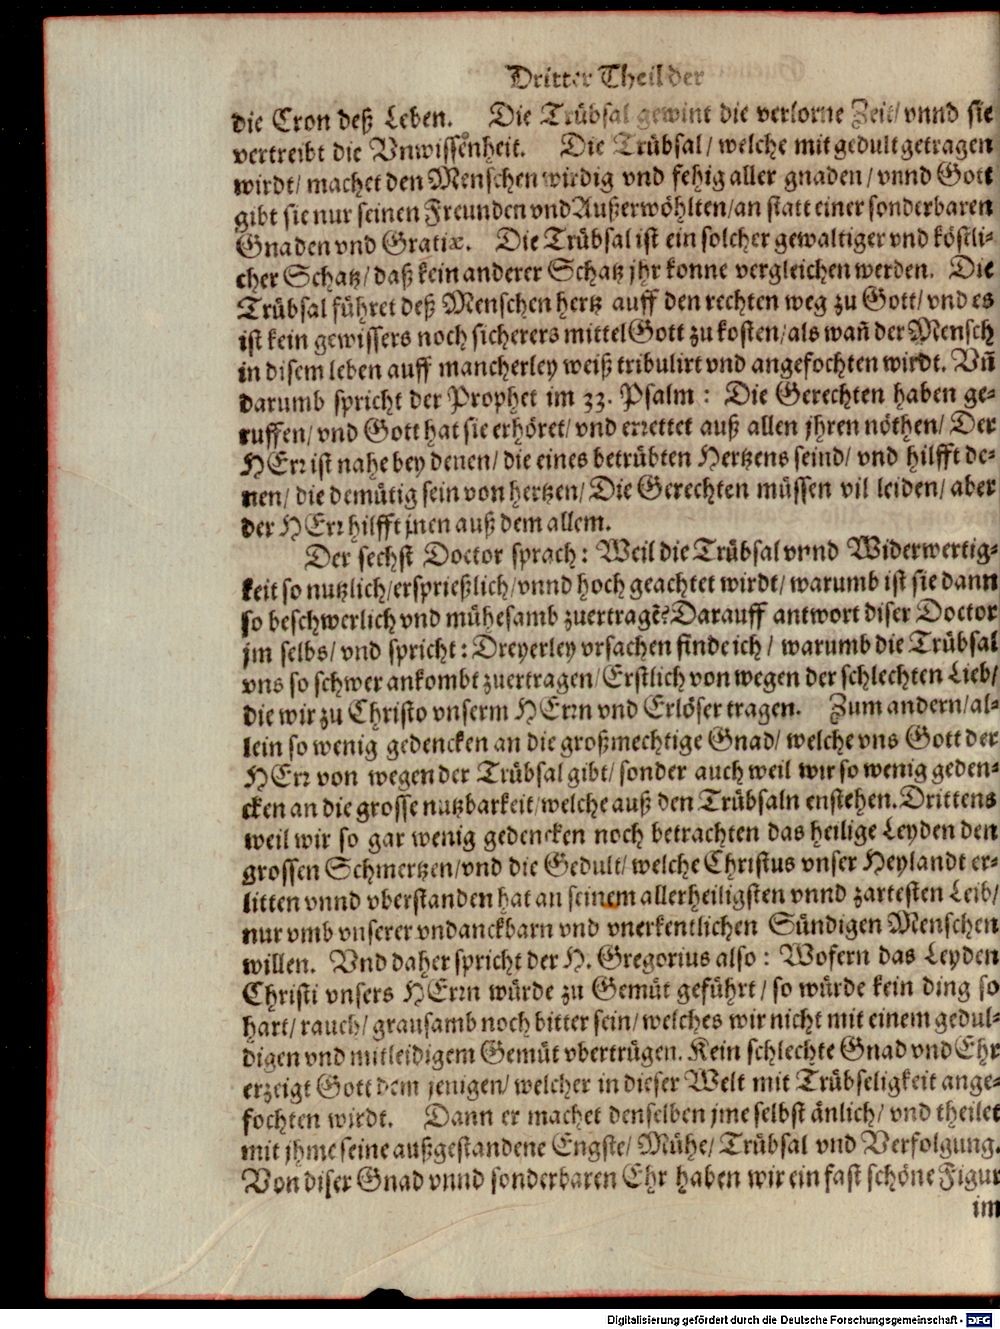 Dritter Theil der
die Cron deß Leben. Die Trübsal gewint die verlorne Zeit/ vnnd sie
vertreibt die Vnwissenheit. Die Trübsal/ welche mit gedult getragen
wirdt/ machet den Menschen wirdig vnd fehig aller gnaden/ vnnd Gott
gibt sie nur seinen Freunden vnd Außerwöhlten/ an statt einer sonderbaren
Gnaden vnd Gratiæ. Die Trübsal ist ein solcher gewaltiger vnd köstli⸗
cher Schatz/ daß kein anderer Schatz jhr konne vergleichen werden. Die
Trübsal führet deß Menschen hertz auff den rechten weg zu Gott/ vnd es
ist kein gewissers noch sicherers mittel Gott zu kosten/ als wañ der Mensch
in disem leben auff mancherley weiß tribulirt vnd angefochten wirdt. Vñ
darumb spricht der Prophet im 33. Psalm: Die Gerechten haben ge⸗
ruffen/ vnd Gott hat sie erhöret/ vnd errettet auß allen jhren nöthen/ Der
HErr ist nahe bey denen/ die eines betrübten Hertzens seind/ vnd hilfft de⸗
nen/ die demütig sein von hertzen/ Die Gerechten müssen vil leiden/ aber
der HErr hilfft jnen auß dem allem.
Der sechst Doctor sprach: Weil die Trübsal vnnd Widerwertig⸗
keit so nutzlich/ ersprießlich/ vnnd hoch geachtet wirdt/ warumb ist sie dann
so beschwerlich vnd mühesamb zuertragẽ? Darauff antwort diser Doctor
jm selbs/ vnd spricht: Dreyerley vrsachen finde ich/ warumb die Trübsal
vns so schwer ankombt zuertragen/ Erstlich von wegen der schlechten Lieb/
die wir zu Christo vnserm HErrn vnd Erlöser tragen. Zum andern/ al⸗
lein so wenig gedencken an die großmechtige Gnad/ welche vns Gott der
HErr von wegen der Trübsal gibt/ sonder auch weil wir so wenig geden⸗
cken an die grosse nutzbarkeit/ welche auß den Trübsaln enstehen. Drittens
weil wir so gar wenig gedencken noch betrachten das heilige Leyden den
grossen Schmertzen/ vnd die Gedult/ welche Christus vnser Heylandt er⸗
litten vnnd vberstanden hat an seinem allerheiligsten vnnd zartesten Leib/
nur vmb vnserer vndanckbarn vnd vnerkentlichen Sündigen Menschen
willen. Vnd daher spricht der H. Gregorius also: Wofern das Leyden
Christi vnsers HErrn würde zu Gemüt geführt/ so würde kein ding so
hart/ rauch/ grausamb noch bitter sein/ welches wir nicht mit einem gedul⸗
digen vnd mitleidigem Gemüt vbertrügen. Kein schlechte Gnad vnd Ehr
erzeigt Gott dem jenigen/ welcher in dieser Welt mit Trübseligkeit ange⸗
fochten wirdt. Dann er machet denselben jme selbst änlich/ vnd theilet
mit jhme seine außgestandene Engste/ Mühe/ Trübsal vnd Verfolgung.
Von diser Gnad vnnd sonderbaren Ehr haben wir ein fast schöne Figur
im
Digitalisierung gefördert durch die Deutsche Forschungsgemeinschaft - DFG